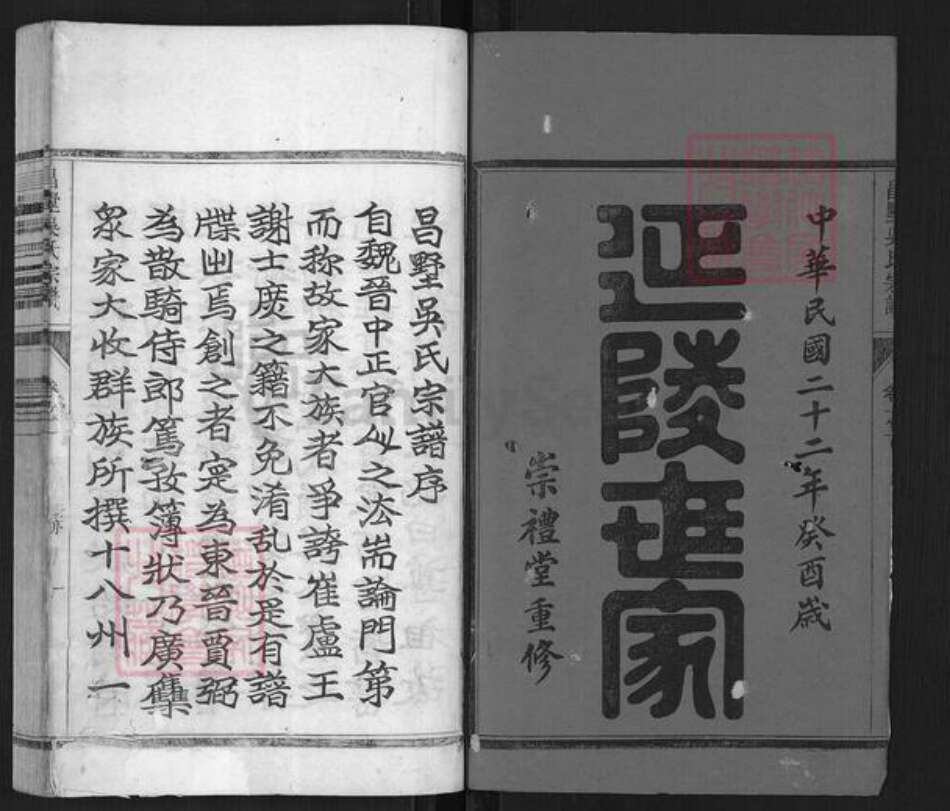 中華民國二十二年癸酉歲
延陵世家
崇禮堂重修
昌墅吳氏宗譜序
自魏晉中正官人之法耑論門第
而称故家大族者爭誇崔盧王
謝士庻之籍不免淆乱於是有譜
牒出焉創之者寔為東晉賈弼
為散騎侍郎篤孜簿狀乃廣集
众家大收群族所撰十八州一